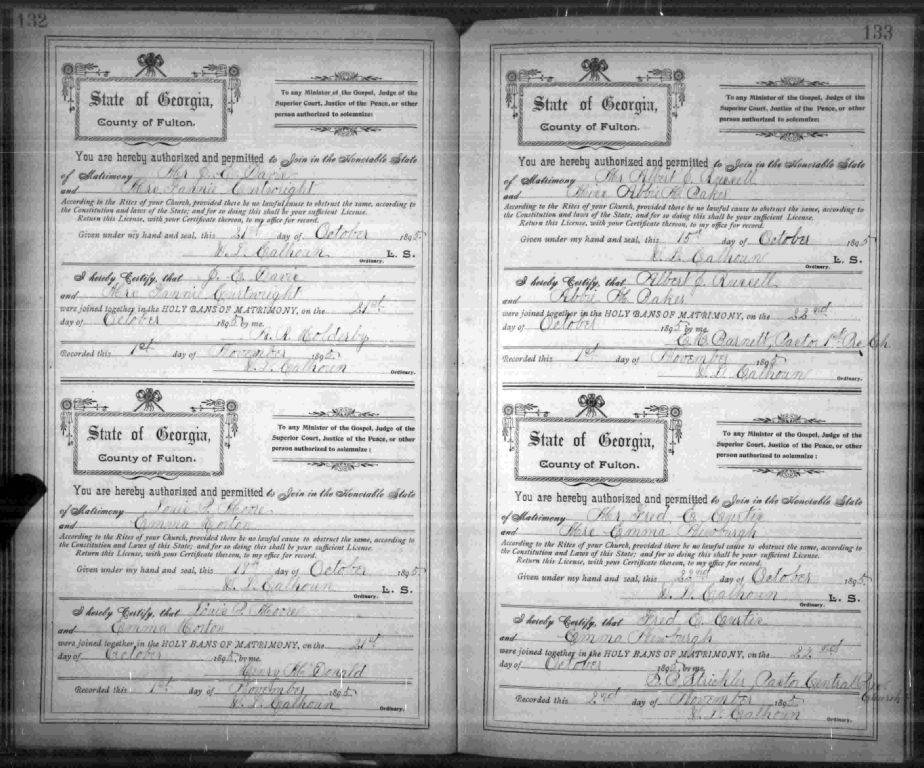 132
State of Georgia,
County of Fulton.
To any Minister of the Gospel, Judge of the
Superior Court, Justice of the Peace, or other
person authorized to solemnize:
You are hereby authorized and permitted to Join in the Honorable State
of Matrimony Mr
and Mrs. Fannie
According to the Rites of your Church, provided there be no lawful cause to obstruct the same, according to
the Constitution and laws of the State; and for so doing this shall be your sufficient License.
Return this License, with your Certificate thereon, to my office for record.
Given under my hand and seal, this 21st day of October 1895
Calhoun L. S.
Ordinary.
I hereby Certify, that
and Mrs. Fannie
were joined together in the HOLY BANS OF MATRIMONY, on the 21st
day of October 1895 by me.
Holderby
Recorded this 1st day of November 1895
Calhoun
Ordinary.
State of Georgia,
County of Fulton.
To any Minister of the Gospel, Judge of the
Superior Court, Justice of the Peace, or other
person authorized to solemnize:
You are hereby authorized and permitted to Join in the Honorable State
of Matrimony Moore
and Emma
According to the Rites of your Church, provided there be no lawful cause to obstruct the same, according to
the Constitution and Laws of this State; and for so doing this shall be your sufficient License.
Return this License, with your Certificate thereon, to my office for record.
Given under my hand and seal, this day of October 1895
Calhoun L. S.
Ordinary.
I hereby Certify, that Moore
and Emma
were joined together in the HOLY BANS OF MATRIMONY, on the 21st
day of October 1895, by me.
Henry McDonald
Recorded this 1st day of November 1895
Calhoun
Ordinary.
133
State of Georgia,
County of Fulton.
To any Minister of the Gospel, Judge of the
Superior Court, Justice of the Peace, or other
person authorized to solemnize:
You are hereby authorized and permitted to Join in the Honorable State
of Matrimony Mr Albert Russell
and Abbie M. Baker
According to the Rites of your Church, provided there be no lawful cause to obstruct the same, according to
the Constitution and laws of the State; and for so doing this shall be your sufficient License.
Return this License, with your Certificate thereon, to my office for record.
Given under my hand and seal, this 15th day of October 1895
Calhoun L. S.
Ordinary.
I hereby Certify, that Albert Russell
and Abbie M. Baker
were joined together in the HOLY BANS OF MATRIMONY, on the 22nd
day of October 1895 by me
Barnett, Pastor 1st Ch.
Recorded this 1st day of November 1895
Calhoun
Ordinary.
State of Georgia,
County of Fulton.
To any Minister of the Gospel, Judge of the
Superior Court, Justice of the Peace, or other
person authorized to solemnize:
You are hereby authorized and permitted to Join in the Honorable State
of Matrimony Mr Fred E. Curtis
and Emma Newburgh
According to the Rites of your Church, provided there be no lawful cause to obstruct the same, according to
the Constitution and Laws of this State; and for so doing this shall be your sufficient License.
Return this License, with your Certificate thereon, to my office for record.
Given under my hand and seal, this 22nd day of October 1895
Calhoun L. S.
Ordinary.
I hereby Certify, that Fred E. Curtis
and Emma Newburgh
were joined together in the HOLY BANS OF MATRIMONY, on the 22nd
day of October 1895, by me
Strickler, Pastor Central
Church
Recorded this 2nd day of November 1895
Calhoun
Ordinary.